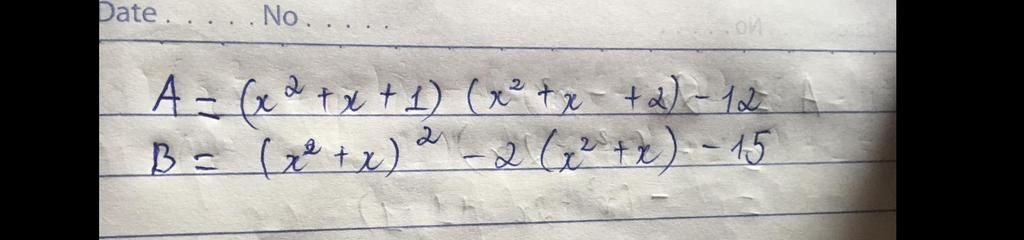 Date . . . . . . No . . . . . .
A = (x² + x + 1) (x² + x + 2) - 12
B = (x² + x)² - 2 (x² + x) - 15